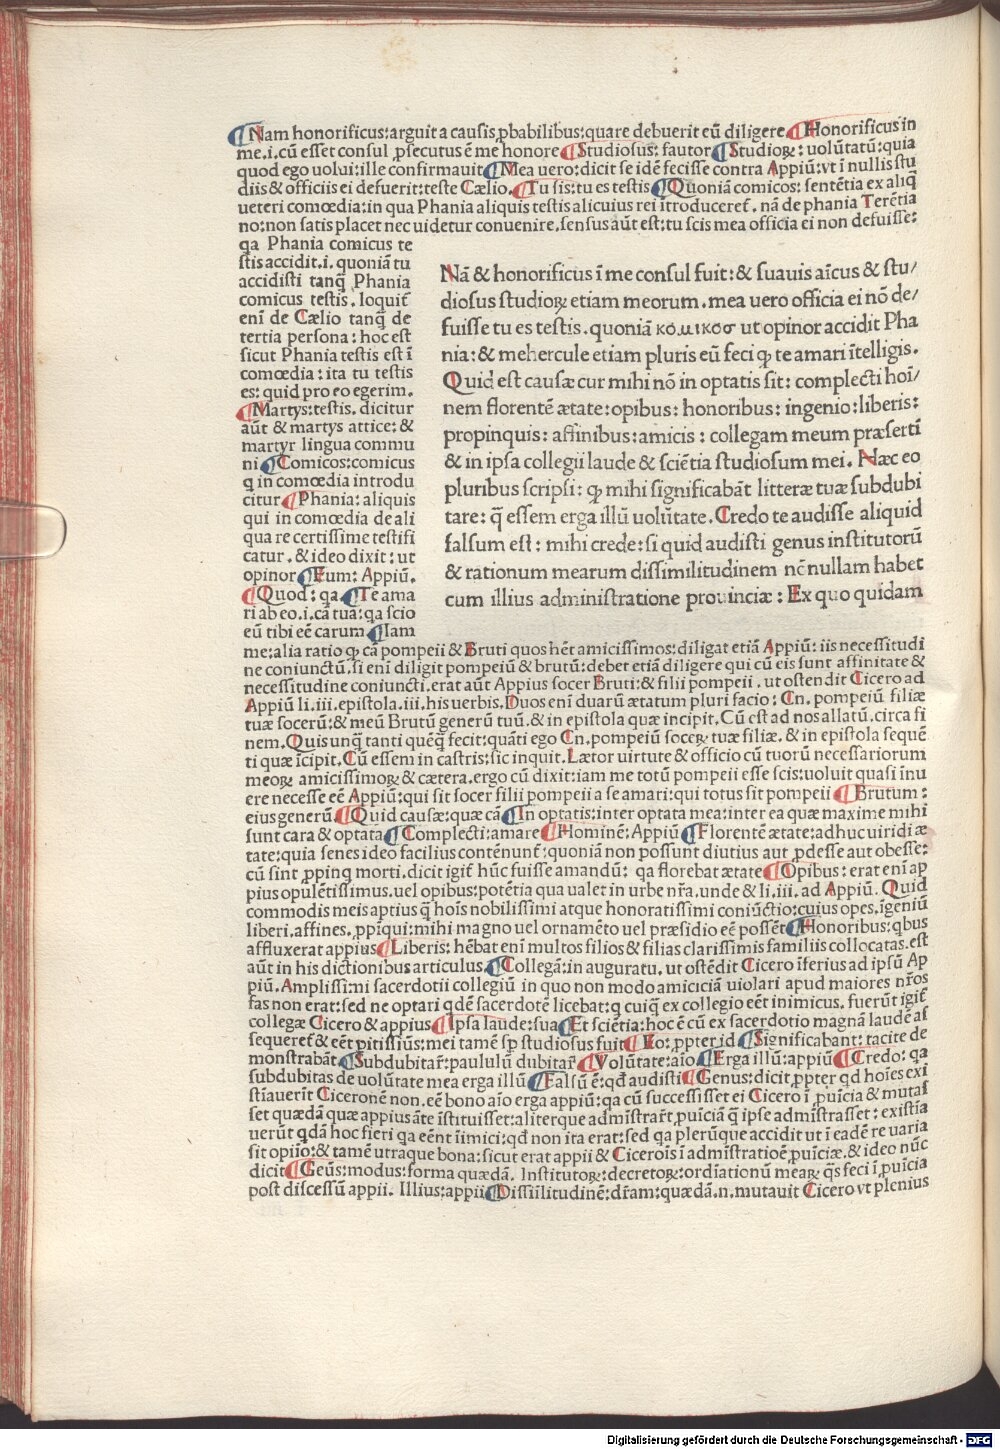 ¶Nam honorificus:arguit a causis ꝓbabilibus:quare debuerit eū diligere ¶Honorificus in
me.i.cū esset consul ꝓsecutus ē me honore ¶Studiosus: fautor ¶Studioꝝ: uolūtatū:quia
quod ego uolui:ille confirmauit ¶Mea uero:dicit se idē fecisse contra Appiū:vt ī nullis stu
diis & officiis ei defuerit:teste Cælio. ¶Tu sis:tu es testis ¶Quoniā comicos: sentētia ex aliq̄
ueteri comœdia:in qua Phania aliquis testis alicuius rei ītroduceret̄. nā de phania Terētia
no:non satis placet nec uidetur conuenire.sensus aūt est:tu scis mea officia ei non defuisse:
qa Phania comicus te
stis accidit.i. quoniā tu
accidisti tanq̄ Phania
comicus testis. loquit̄
enī de Cælio tanq̄ de
tertia persona: hoc est
sicut Phania testis est ī
comœdia: ita tu testis
es: quid pro eo egerim.
¶Martys:testis. dicitur
aūt & martys attice: &
martyr lingua commu
ni ¶Comicos:comicus
q in comœdia introdu
citur ¶Phania: aliquis
qui in comœdia de ali
qua re certissime testifi
catur. & ideo dixit: ut
opinor ¶Eum: Appiū.
¶Quod: qa ¶Te ama
ri ab eo.i.cā tua: qa scio
eū tibi eē carum ¶Iam
Nā & honorificus ī me consul fuit: & suauis aīcus & stu/
diosus studioꝝ etiam meorum. mea uero officia ei nō de/
fuisse tu es testis. quoniā κομικοσ ut opinor accidit Pha
nia: & mehercule etiam pluris eū feci ꝙ te amari ītelligis.
Quid est causæ cur mihi nō in optatis sit: complecti hoī/
nem florentē ætate: opibus: honoribus: ingenio: liberis:
propinquis: affinibus: amicis : collegam meum præsertī
& in ipsa collegii laude & sciētia studiosum mei. Hæc eo
pluribus scripsi: ꝙ mihi significabāt litteræ tuæ subdubi
tare: q̄ essem erga illū uolūtate. Credo te audisse aliquid
falsum est: mihi crede: si quid audisti genus institutorū
& rationum mearum dissimilitudinem nēnullam habet
cum illius administratione prouinciæ : Ex quo quidam
me:alia ratio ꝙ cā pompeii & Bruti quos hēt amicissimos:diligat etiā Appiū: iis necessitudi
ne coniunctū.si enī diligit pompeiū & brutū:debet etiā diligere qui cū eis sunt affinitate &
necessitudine coniuncti.erat aūt Appius socer Bruti:& filii pompeii. ut ostendit Cicero ad
Appiū li.iii.epistola.iii.his uerbis. Duos enī duarū ætatum pluri facio: Cn. pompeiū filiæ
tuæ socerū:& meū Brutū generū tuū.& in epistola quæ incipit. Cū est ad nos allatū.circa fi
nem.Quis unq̄ tanti quēq̄ fecit:quāti ego Cn.pompeiū soceꝝ tuæ filiæ. & in epistola sequē
ti quæ īcipit.Cū essem in castris:sic inquit.Lætor uirtute & officio cū tuorū necessariorum
meoꝝ amicissimoꝝ & cætera.ergo cū dixit:iam me totū pompeii esse scis:uoluit quasi īnu
ere necesse eē Appiū:qui sit socer filii pompeii a se amari:qui totus sit pompeii ¶Brutum:
eius generū. ¶Quid causæ:quæ cā ¶In optatis:inter optata mea:inter ea quæ maxime mihi
sunt cara & optata ¶Complecti:amare ¶Hominē:Appiū ¶Florentē ætate:adhuc uiridi æ
tate:quia senes ideo facilius contēnunt̄:quoniā non possunt diutius aut ꝓdesse aut obesse:
cū sint ꝓpinq morti.dicit igit̄ hūc fuisse amandū: qa florebat ætate ¶Opibus: erat enī ap
pius opulētissimus.uel opibus:potētia qua ualet in urbe nr̄a.unde & li.iii. ad Appiū. Quid
commodis meis aptius q̄ hoīs nobilissimi atque honoratissimi coniūctio:cuius opes.īgeniū
liberi.affines.ꝓpīqui:mihi magno uel ornamēto uel præsidio eē possēt ¶Honoribus:qbus
affluxerat appius ¶Liberis: hēbat enī multos filios & filias clarissimis familiis collocatas.est
aūt in his dictionibus articulus ¶Collegā:in auguratu. ut ostēdit Cicero īferius ad ipsū Ap
piū. Amplissimi sacerdotii collegiū in quo non modo amiciciā uiolari apud maiores nr̄os
fas non erat:sed ne optari qdē sacerdotē licebat:q cuiq̄ ex collegio eēt inimicus. fuerūt igit̄
collegæ Cicero & appius ¶Ipsa laude:sua ¶Et sciētia:hoc ē cū ex sacerdotio magnā laudē as
sequeret̄ & eēt pitissiūs:mei tamē sꝑ studiosus fuit ¶Eo: ꝓpter id ¶Significabant: tacite de
monstrabāt ¶Subdubitar̄:paululū dubitar̄ ¶Volūtate:aīo ¶Erga illū:appiū ¶Credo: qa
subdubitas de uolūtate mea erga illū ¶Falsū ē:qd̄ audisti ¶Genus:dicit ꝓpter qd hoīes exi
stīauerit Ciceronē non.eē bono aīo erga appiū:qa cū successisset ei Cicero ī ꝓuīcia & mutas
set quædā quæ appius āte īstituisset:aliterque admīstrar̄t ꝓuīciā q̄ ipse admīstrasset: existīa
uerūt qdā hoc fieri qa eēnt īimici:qd̄ non ita erat:sed qa plerūque accidit ut ī eadē re uaria
sit opiīo:& tamē utraque bona:sicut erat appii & Ciceroīs ī admīstratioē ꝓuīciæ.& ideo nūc
dicit ¶Geūs:modus:forma quædā. Institutoꝝ:decretoꝝ:ordīationū meaꝝ q̄s feci ī ꝓuīcia
post discessū appii. Illius:appii ¶Dissīilitudinē:dr̄am:quædā.n.mutauit Cicero vt plenius
Digitalisierung gefördert durch die Deutsche Forschungsgemeinschaft - DFG